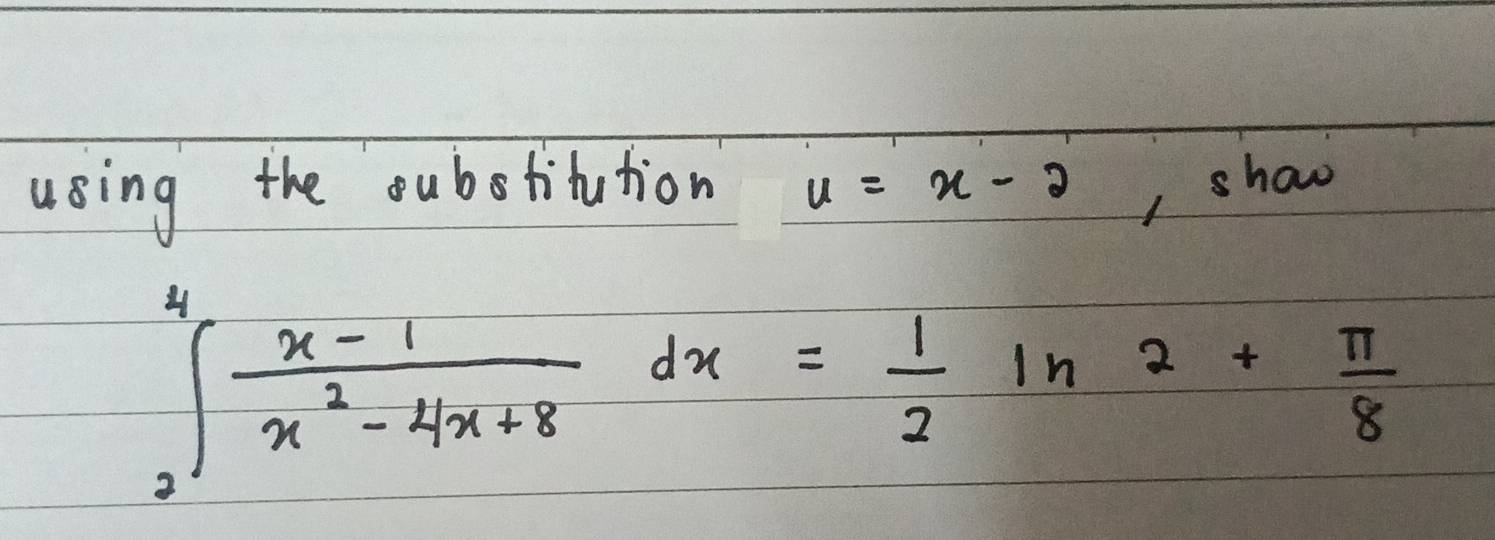 using the substitution u = x - 2 , show
∫₂⁴ (x - 1)/(x² - 4x + 8) dx = 1/2 ln 2 + π/8